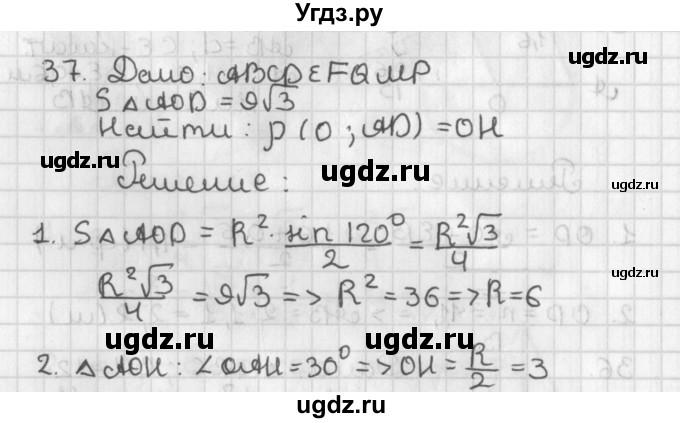 Угдз.ру
37. Дано: ABCDEFQMP
S △ AOD = 9√3
Найти: ρ (O ; AD) = OH
ugdz.ru ugdz.ru ugdz.ru
Решение:
1. S △ AOD = R² · sin 120° / 2 = R²√3 / 4
R²√3 / 4 = 9√3 => R² = 36 => R = 6
ugdz.ru ugdz.ru
2. △ AOH : ∠OAH = 30° => OH = R / 2 = 3
ugdz.ru